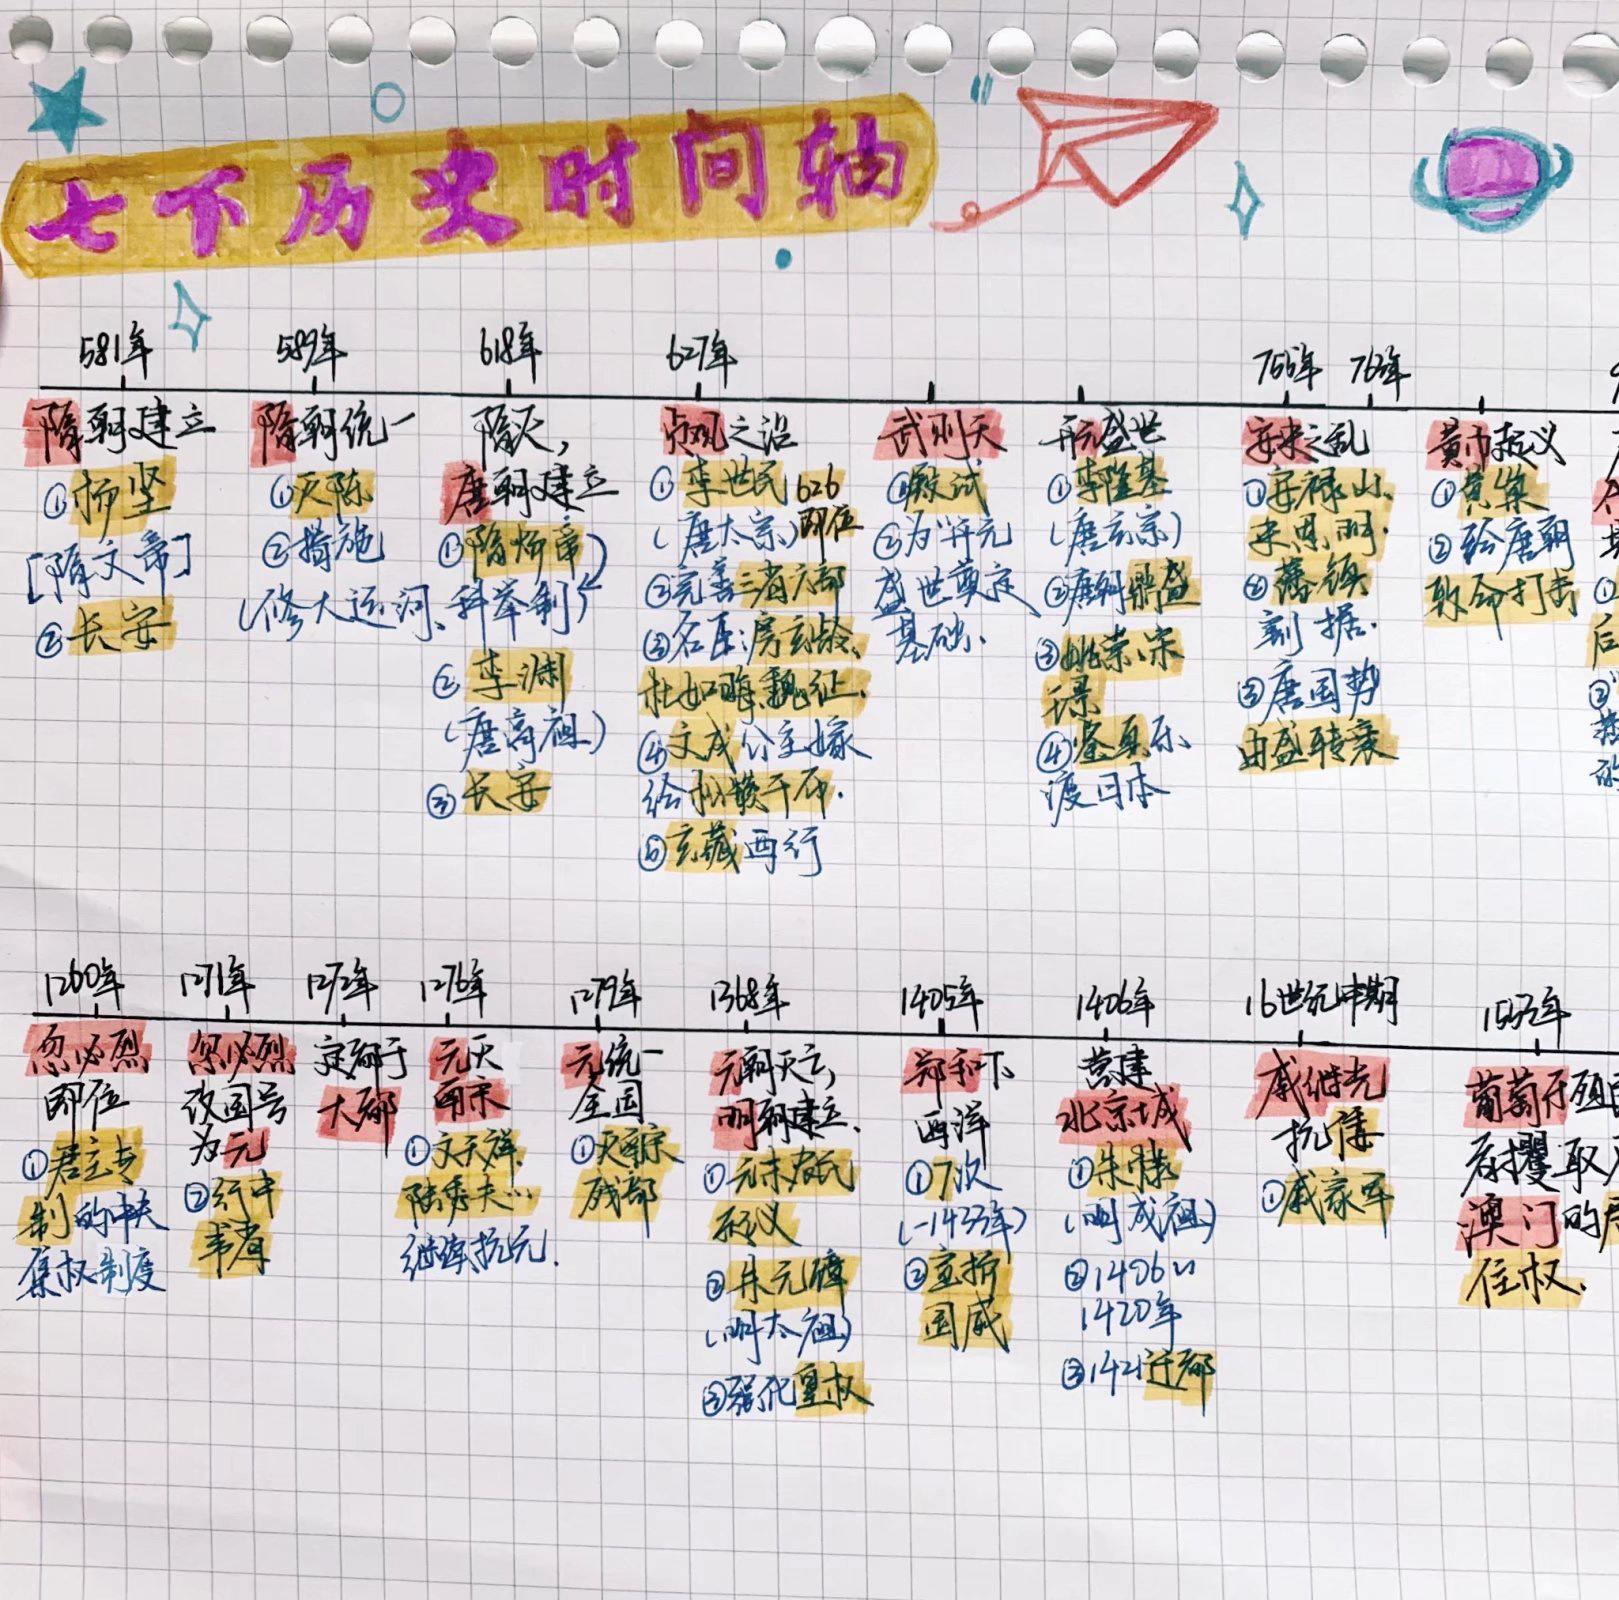 七下历史时间轴
581年
隋朝建立
①杨坚
[隋文帝]
②长安
589年
隋朝统一
①灭陈
②措施
(修大运河、科举制)
618年
隋灭,
唐朝建立
①隋炀帝
②李渊
(唐高祖)
③长安
627年
贞观之治
①李世民 626
(唐太宗) 即位
②完善三省六部
③名臣:房玄龄、
杜如晦、魏征.
④文成公主嫁
给松赞干布.
⑤玄藏西行
武则天
①殿试
②为开元
盛世奠定
基础.
开元盛世
①李隆基
(唐玄宗)
②唐朝鼎盛
③姚崇、宋
璟
④鉴真东
渡日本
755年 763年
安史之乱
①安禄山、
史思明.
②藩镇
割据.
③唐国势
由盛转衰
黄巾起义
①黄巢
②给唐朝
致命打击
后
1260年
忽必烈
即位
①君主专
制的中央
集权制度
1271年
忽必烈
改国号
为元
②行中
书省
1272年
定都于
大都
1276年
元灭
南宋
①文天祥.
陆秀夫...
继续抗元.
1279年
元统一
全国
①灭南宋
残部
1368年
元朝灭亡,
明朝建立.
①元末农民
起义
②朱元璋
(明太祖)
③强化皇权
1405年
郑和下
西洋
①7次
(-1433年)
②宣扬
国威
1406年
营建
北京城
①朱棣
(明成祖)
②1406~
1420年
③1421迁都
16世纪中期
戚继光
抗倭
①戚家军
1553年
葡萄牙殖
者攫取
澳门的居
住权.